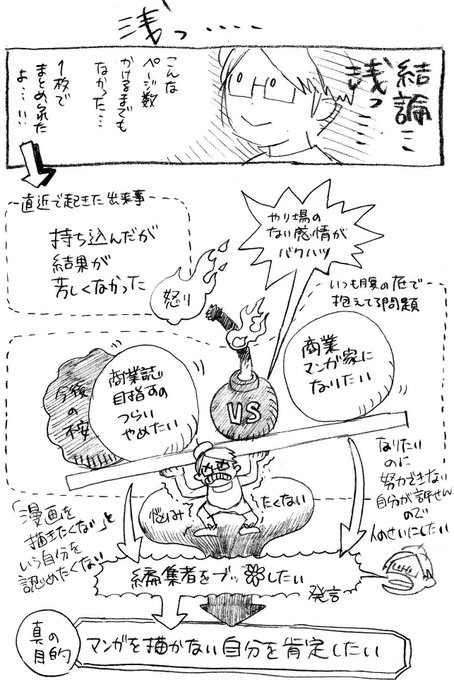 浅っ‥‥‥
結論…
浅っ…
こんな
ページ数
かけるまでも
なかった…
1枚で
まとめられた
よ…!!
直近で起きた出来事
持ち込んだが
結果が
芳しくなかった
やり場の
ない感情が
バクハツ
怒り
いつも腹の底で
抱えてる問題
今後の
桜
商業誌
目指すの
つらい
やめたい
VS
商業
マンガ家に
なりたい
「漫画を
描きたくない」と
いう自分を
認めたくない
悩み
たくない
なりたい
のに
努力できない
自分が許せん
ので
人のせいにしたい
編集者をブッ したい
発言
真の
目的
マンガを描かない自分を肯定したい